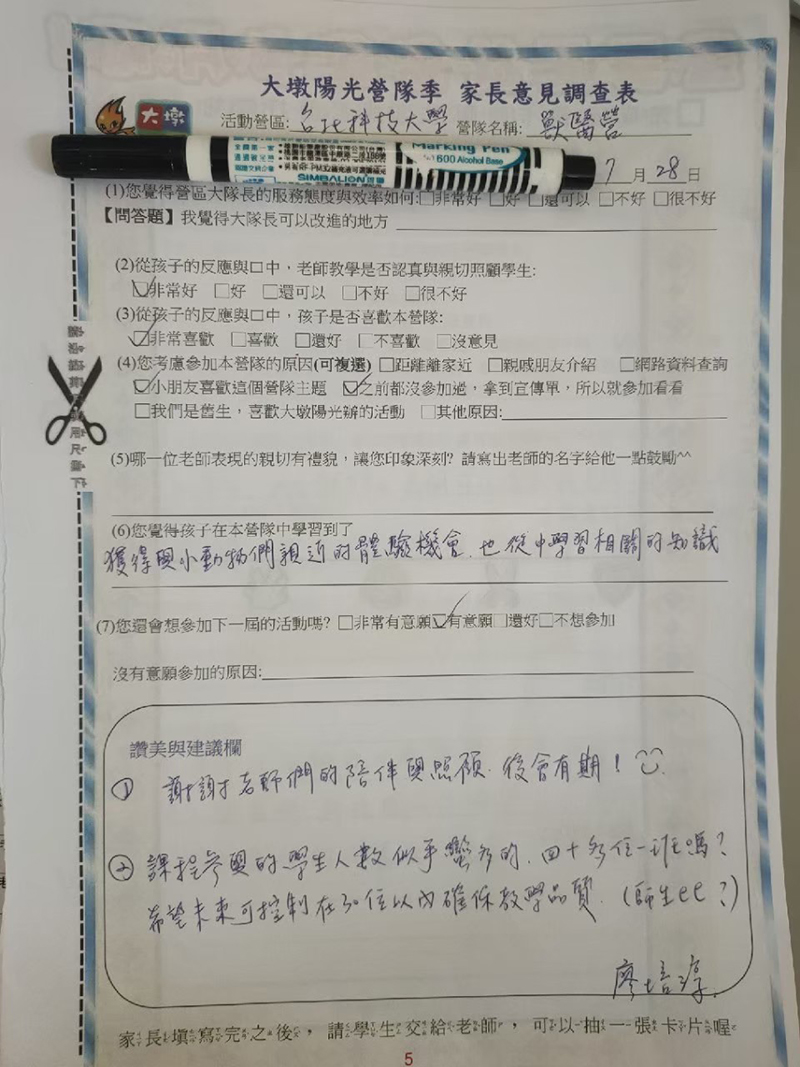 大墩陽光營隊季 家長意見調查表
大墩
活動營區:台北科技大學 營隊名稱: 獸醫營
Marking Pen
600 Alcohol Base
SIMBALION
7 月 28 日
(1)您覺得營區大隊長的服務態度與效率如何:□非常好 □好 □還可以 □不好 □很不好
【問答題】我覺得大隊長可以改進的地方
(2)從孩子的反應與口中，老師教學是否認真與親切照顧學生:
☑非常好 □好 □還可以 □不好 □很不好
(3)從孩子的反應與口中，孩子是否喜歡本營隊:
☑非常喜歡 □喜歡 □還好 □不喜歡 □沒意見
(4)您考慮參加本營隊的原因(可複選)□距離離家近 □親戚朋友介紹 □網路資料查詢
☑小朋友喜歡這個營隊主題 ☑之前都沒參加過，拿到宣傳單，所以就參加看看
□我們是舊生，喜歡大墩陽光辦的活動 □其他原因:
(5)哪一位老師表現的親切有禮貌，讓您印象深刻? 請寫出老師的名字給他一點鼓勵^^
(6)您覺得孩子在本營隊中學習到了
獲得與小動物們親近的體驗機會、也從中學習相關的知識
(7)您還會想參加下一屆的活動嗎? □非常有意願☑有意願□還好□不想參加
沒有意願參加的原因:
讚美與建議欄
① 謝謝老師們的陪伴與照顧、後會有期！
② 課程參與的學生人數似乎蠻多的、四十多位一班嗎？
希望未來可控制在30位以內確保教學品質、(師生cc？)
廖培淳
家長填寫完之後，請學生交給老師，可以抽一張卡片喔
5